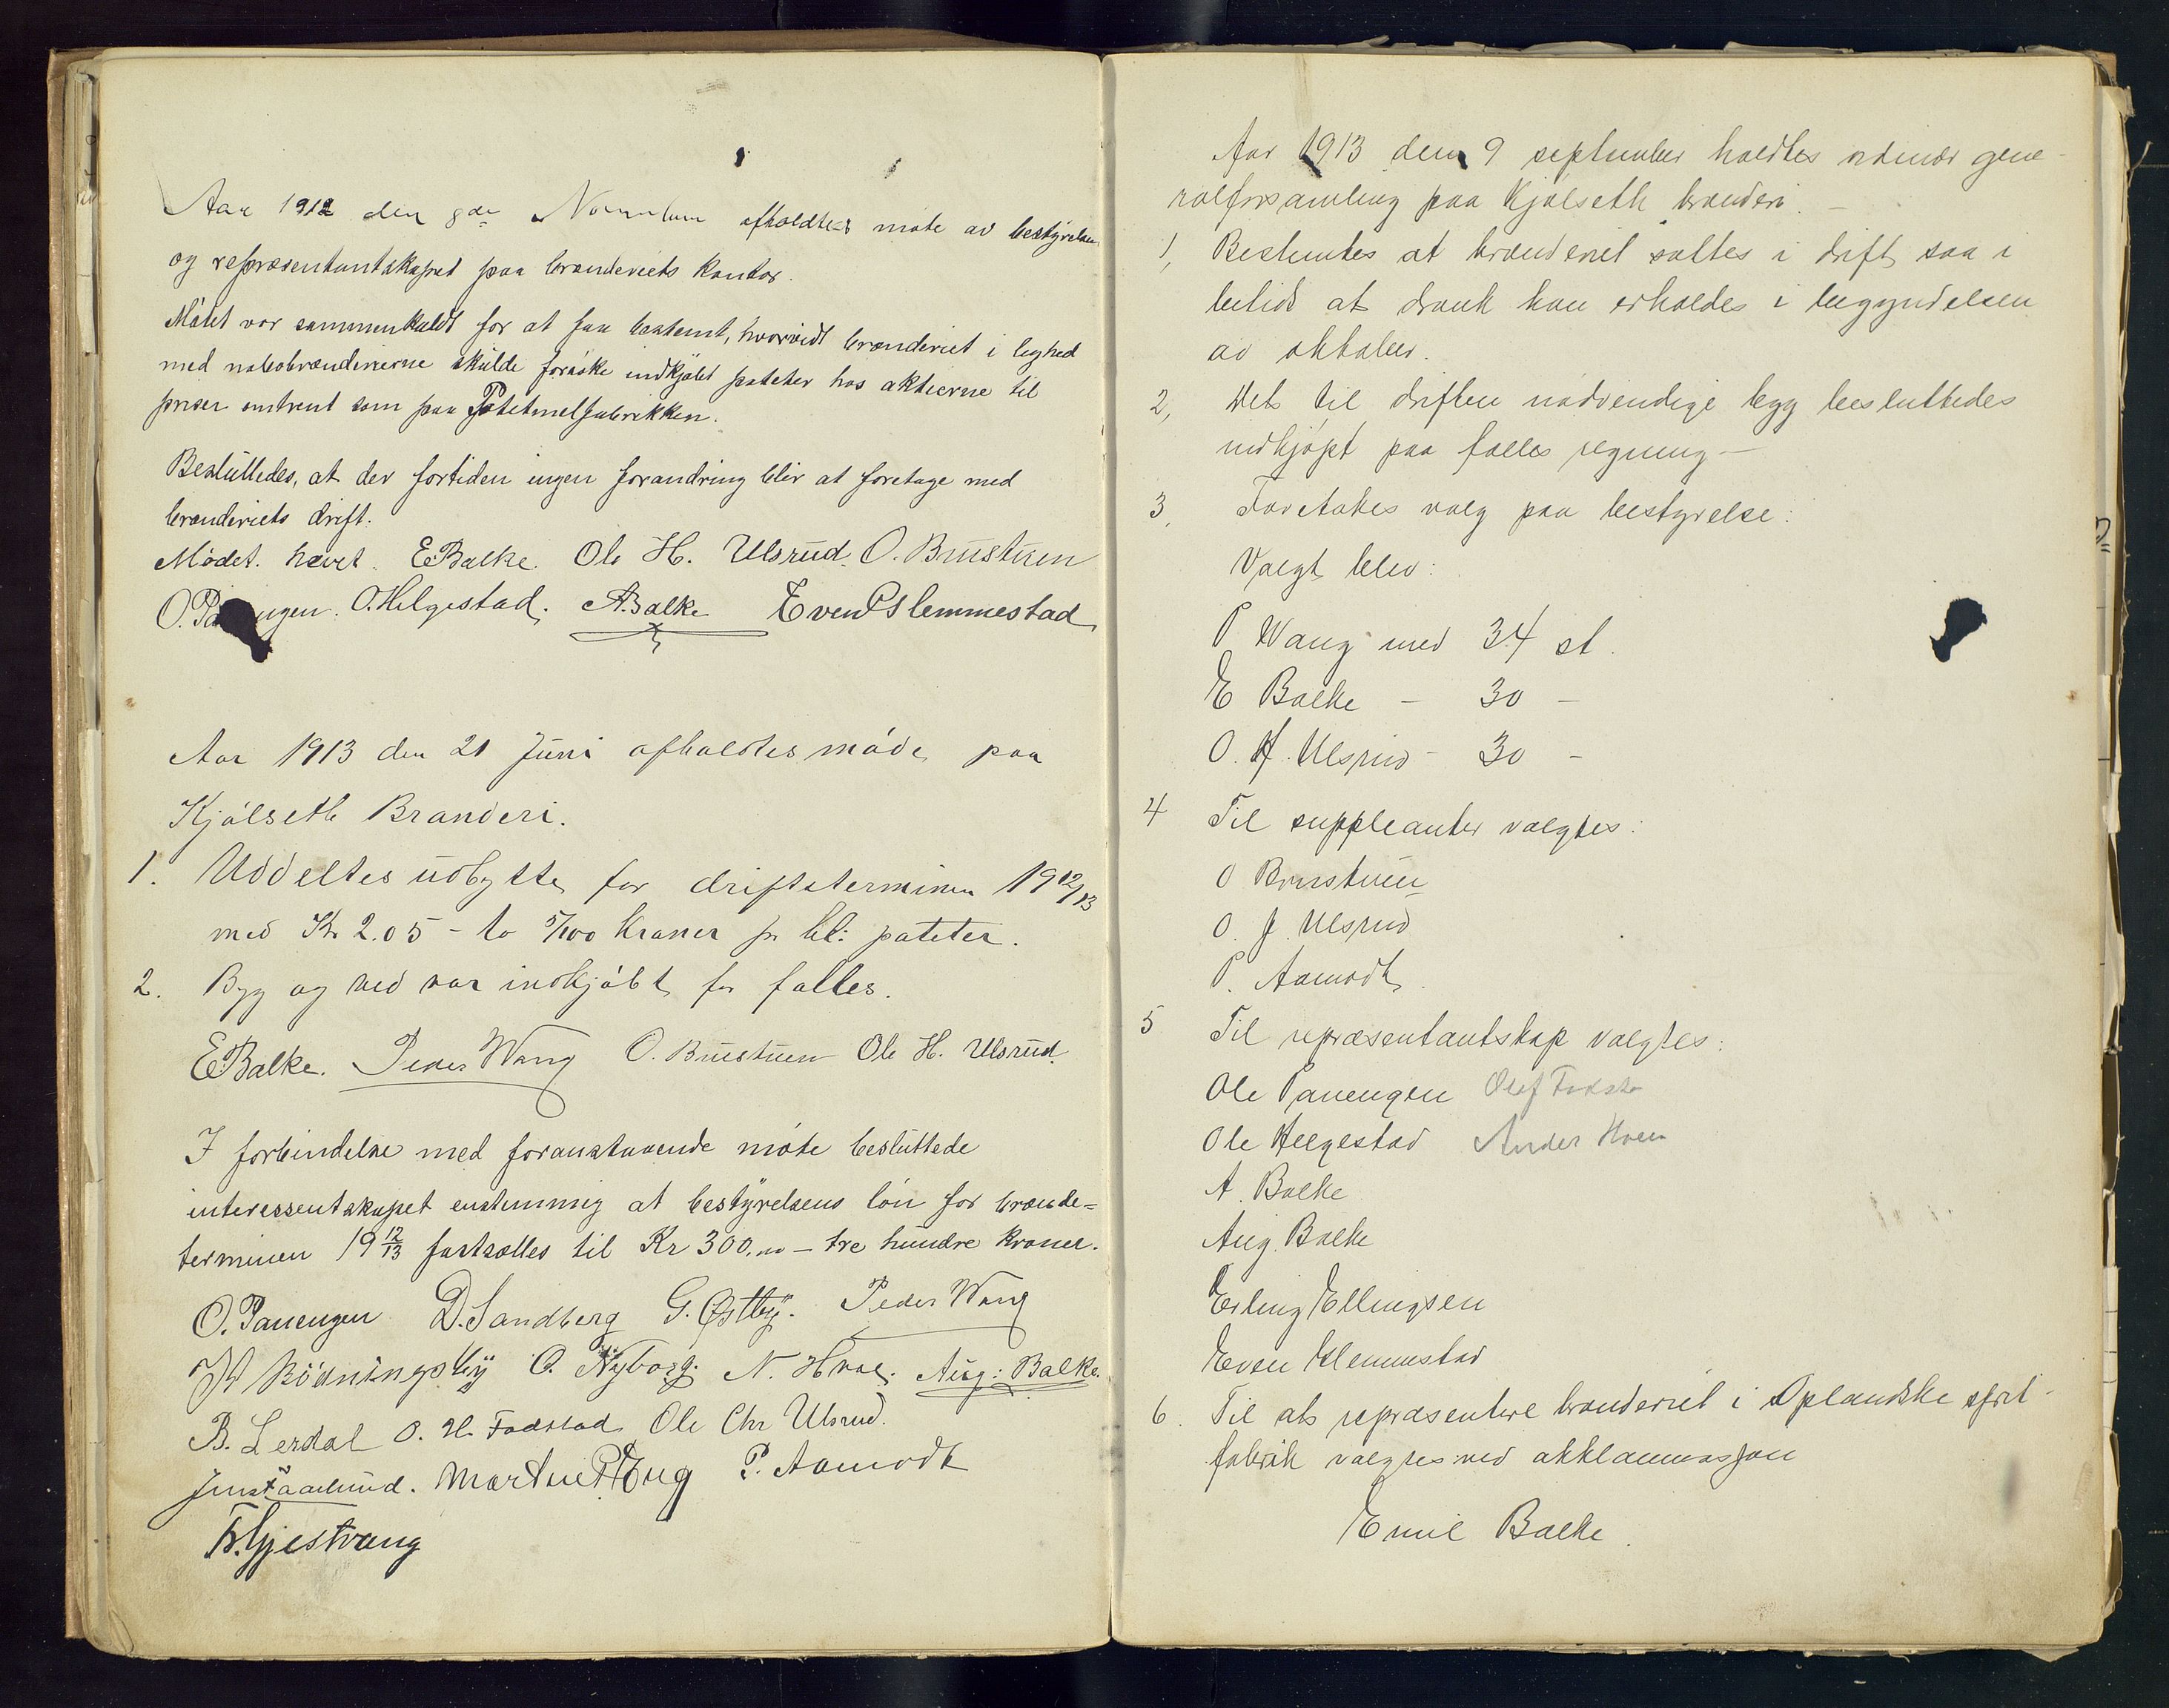 Aar 1912 den 8de November afholdtes møte av bestyrelsen
og repræsentantskapet paa brænderiets kontor.
Møtet var sammenkaldt for at faa bestemt, hvorvidt brænderiet i lighed
med nabobrænderierne skulde forsøke indkjøbt poteter hos aktierne til
priser omtrent som paa Potetmelfabrikken.
Besluttedes, at der fortiden ingen forandring blir at foretage med
brænderiets drift.
Mødet hævet. E Balke. Ole H. Ulsrud. O. Brustuen
O. Pauengen. O. Helgestad. A. Balke Even Slemmestad
Aar 1913 den 21 Juni afholdtes møde paa
Kjølseth Brænderi.
1. Uddeltes udbytte for driftsterminen 19 12/13
med Kr 2.05 - to 5/100 kroner pr hl: poteter.
2. Byg og ved var indkjøbt for fælles.
E Balke. Peder Wang O. Brustuen Ole H. Ulsrud.
I forbindelse med foranstaaende møte besluttede
interessentskapet enstemmig at bestyrelsens løn for brænde=
terminen 19 12/13 fastsættes til Kr 300.00 - tre hundre kroner.
O. Pauengen D. Sandberg G. Østby. Peder Wang
Rögningsby O. Nyborg. N. Hvae. Aug: Balke.
B. Lerdal O. H. Fodstad Ole Chr Ulsrud.
Martin P Eug P. Aamodt
Gjestvang
Aar 1913 den 9 september holdtes ordinær gene-
ralforsamling paa Kjølseth brænderi. -
1, Bestemtes at brænderiet sættes i drift saa i
betids at drank kan erholdes i begyndelsen
av oktober.
2, Det til driften nødvendige bygg besluttedes
indkjøpt paa fælles regning -
3, Foretokes valg paa bestyrelse:
Valgt blev:
P Wang med 34 st.
E Balke - 30 -
O. H. Ulsrud - 30 -
4 Til suppleanter valgtes:
O Brustuen
O. J. Ulsrud
P. Aamodt.
5 Til repræsentantskap valgtes:
Ole Pauengen Olef Fodsta
Ole Helgestad Ander Hoen
A. Balke
Aug. Balke
Erling Ellingsen
Even Slemmestad
6. Til at repræsentere brænderiet i Oplandske sprit-
fabrik valgtes ved akklammasjon
Emil Balke.